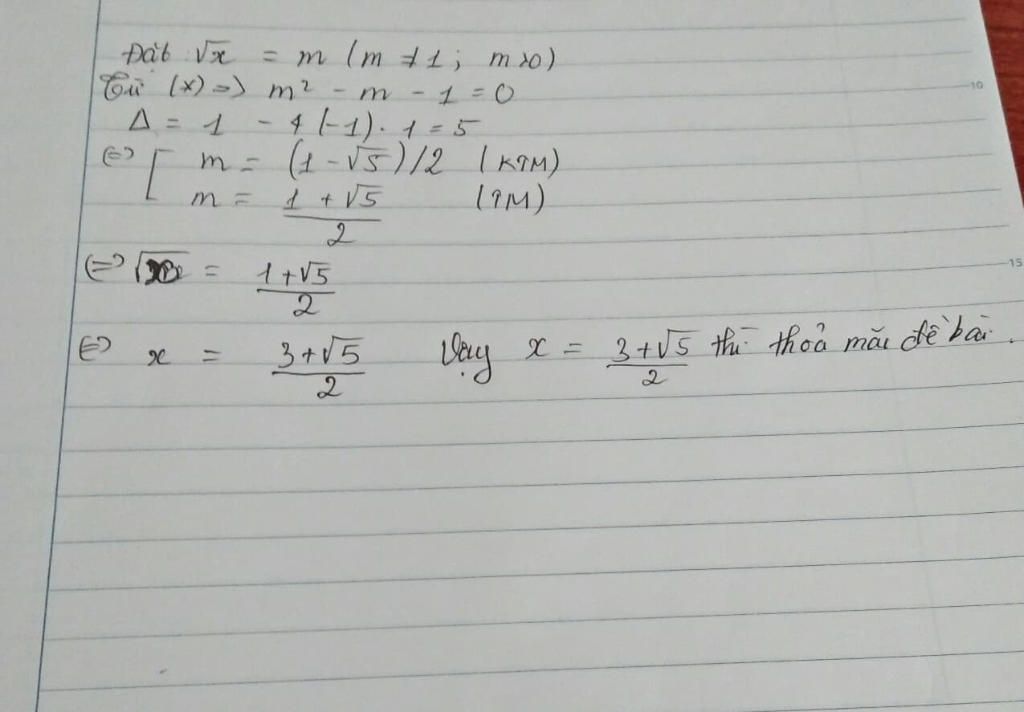 Đặt √x = m (m ≠ 1; m>0)
Từ (x) => m² - m - 1 = 0
Δ = 1 - 4(-1).1 = 5
<=> [ m = (1-√5)/2 (KTM)
m = (1+√5)/2 (TM)
<=> √x = (1+√5)/2
<=> x = (3+√5)/2 Vạy x = (3+√5)/2 thì thoả mãi đề bài.
10
15